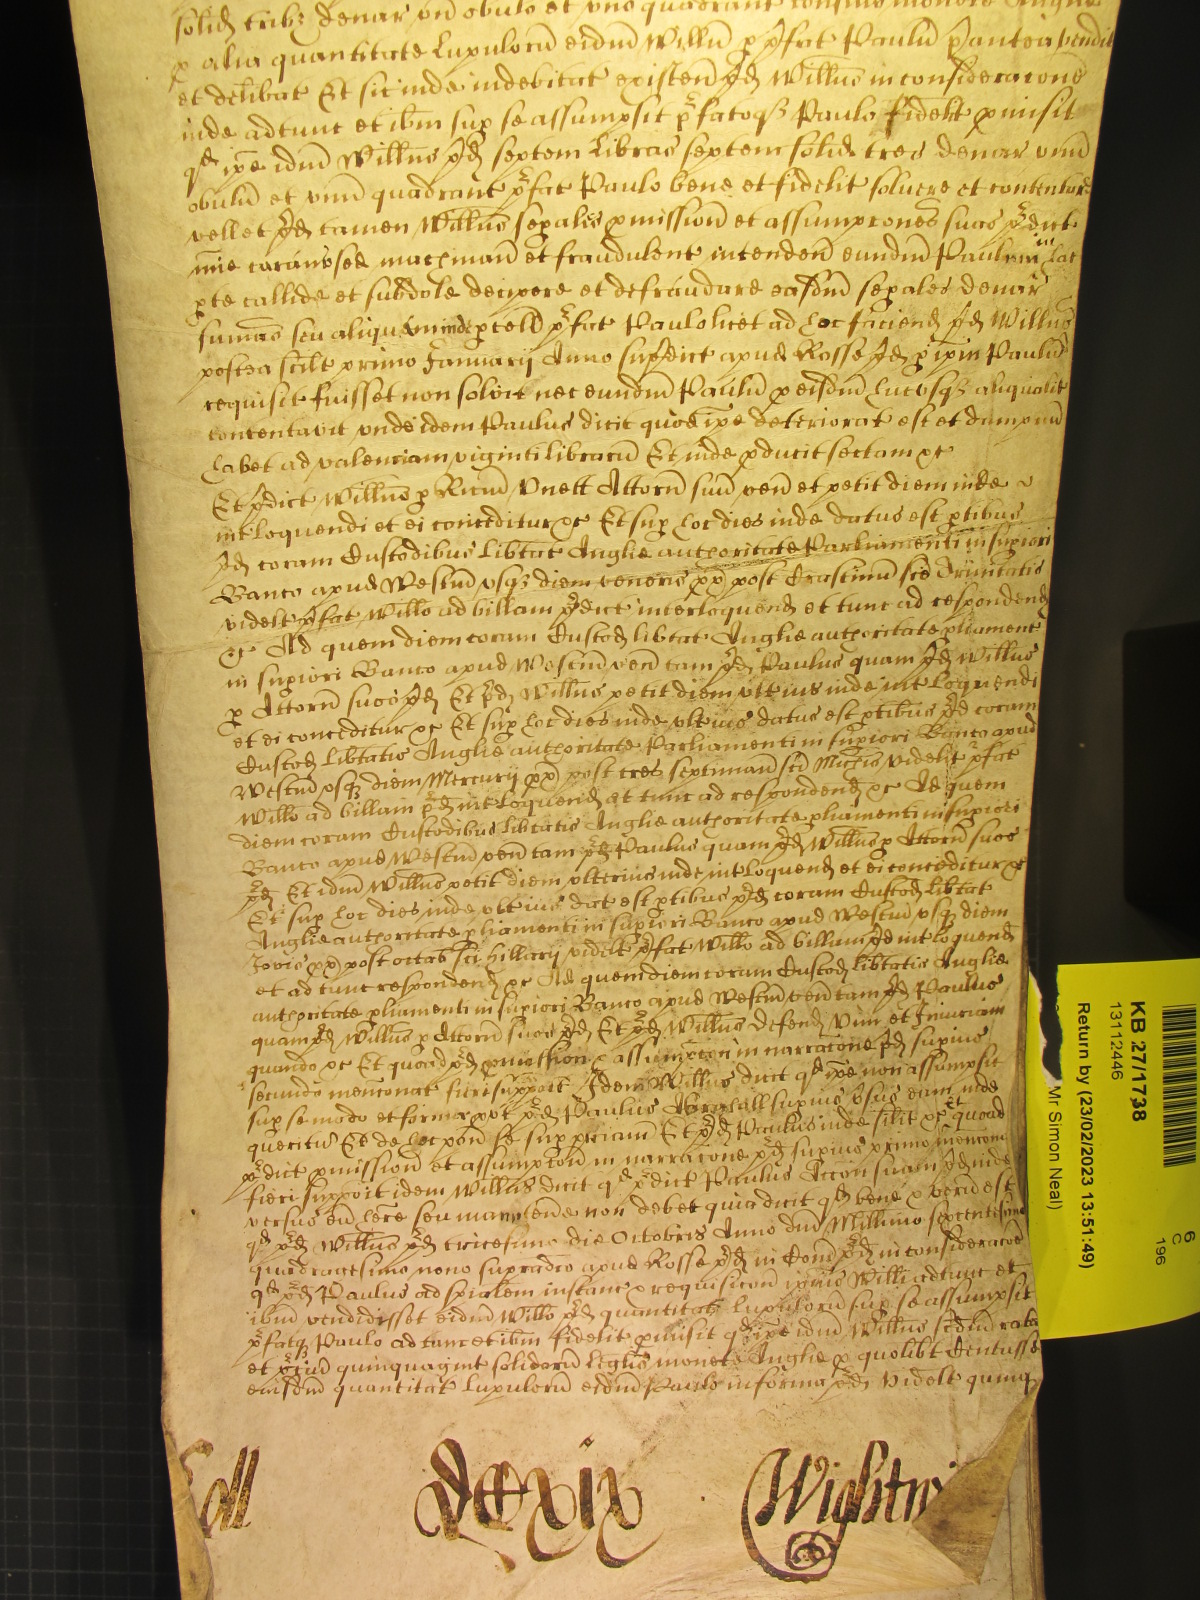 solid trib3 denar un obulo et uno quadrant
p alia quantitate Lupuloru eidm Willo p pfat Paulu pantea vendit
et delibat Et sic inde indebitat existen pd Willus in consideracone
inde adtunc et ibm sup se assumpsit pfatoq3 Paulo fidelit pmisit
qd ipe idm Willus pd septem libras septem solid tres denar unu
obulu et unu quadrant pfat Paulo bene et fidelit solvere et contentare
vellet pd tamen Willus sepales pmission et assumpcones suas pdict
mie curans sed machinan et fraudulent intenden eundm Paulum in hac
pte callide et subdole decipere et defraudare easdm sepales denar
sumas seu aliquem inde pcell pfat Paulo licet ad hoc faciend pd Willus
postea scilt primo Januarij Anno supdict apud Rosse pd p ipm Paulu
requisit fuisset non solvit nec eundm Paulu p eisdm hucusq3 aliqualit
contentavit unde idem Paulus dicit quod ipe deteriorat est et dampnu
habet ad valenciam viginti libraru Et inde pducit sectam &c
Et pdict Willus p Ricum Unett Attorn suu ven et petit diem inde
intloquendi et ei conceditur &c Et sup hoc dies inde datus est ptibus
pd coram Custodibus libtat Anglie authoritate Parliamenti in supiori
Banco apud Westm usq3 diem veneris px post Crastinum sce Trinitatis
videlt pfat Willo ad billam pdict interloquend et tunc ad respondend
&c Ad quem diem coram Custod libtat Anglie authoritate pliament
in supiori Banco apud Westm ven tam pd Paulus quam pd Willus
p Attorn suos pd Et pd Willus petit diem ultius inde intloquendi
et ei conceditur &c Et sup hoc dies inde ultius datus est ptibus pd coram
Custod Libtatis Anglie authoritate Parliamenti in supiori Banco apud
Westm usq3 diem Mercurij px post tres septiman sci Michis videlt pfat
Willo ad billam pd intloquend et tunc ad respondend &c Ad quem
diem coram Custodibus libtatis Anglie authoritate pliamenti in supiori
Banco apud Westm ven tam pd Paulus quam pd Willus p Attorn suos
pd Et idm Willus petit diem ulterius inde intloquend et ei conceditur &c
Et sup hoc dies inde ultius dat est ptibus pd coram Custod libtat
Anglie authoritate pliamenti in supiori Banco apud Westm usq3 diem
Jovis px post octab sci Hillarij videlt pfat Willo ad billam pd intloquend
et ad tunc respondend &c Ad quem diem coram Custod libtatis Anglie
authoritate pliamenti in supiori Banco apud Westm ven tam pd Paulus
quam pd Willus p Attorn suos pd Et pd Willus defend vim et Iniuriam
quando &c Et quoad pd pmission & assumpcon in narracone pd supius
secundo menconat fieri suppoit Idem Willus dicit qd ipe non assumpsit
sup se modo et forma put pd Paulus supius vsus eum inde
queritur Et de hoc pon se sup priam Et pd Paulus inde silit &c et quoad
pdict pmission et assumpcon in narracone pd supius primo mencon
fieri suppoit idem Willus dicit qd pdict Paulus Accon suam pd inde
versus eu here seu manutene non debet quia dicit qd bene & veru est
qd pd Willus pd tricesimo die Octobris Anno dni Millimo sexcentesimo
quadragesimo nono supradco apud Rosse pd in Com pd in consideracoe
qd pd Paulus ad spialem instanc & requisicon ipius Willi adtunc et
ibm vendidisset eidm Willo pd quantitat Lupuloru sup se assumpsit
pfatq3 Paulo ad tunc et ibm fidelit pmisit qd ipe idm Willus scdm rata
et pciu quinquagint solidoru leglis monete Anglie p quolibt Centussi
eiusdm quantitat Lupuloru eidm Paulo in forma pd videlt quinq
DCXIX
KB 27/1738
13112446
Return by (23/02/2023 13:51:49)
Mr Simon Neal)
6
C
196